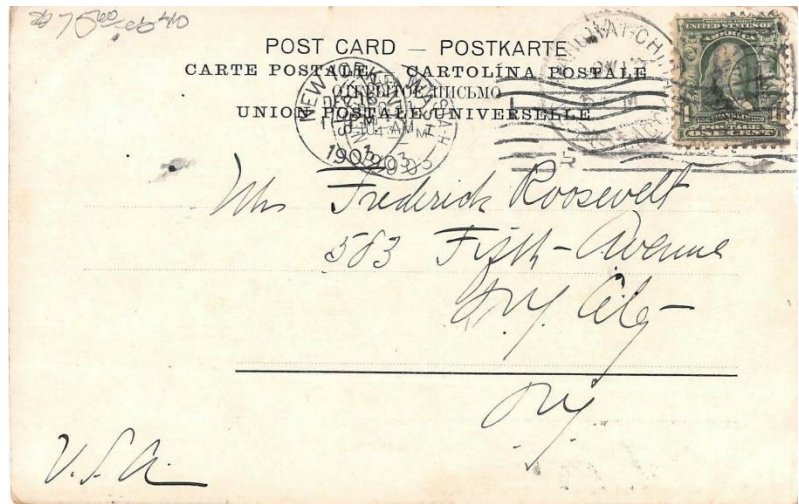 POST CARD — POSTKARTE
CARTE POSTALE CARTOLINA POSTALE
ОТКРЫТОЕ ПИСЬМО
UNION POSTALE UNIVERSELLE
NEW YORK
1903
1903
UNITED STATES OF
AMERICA
FRANKLIN
ONE CENT
Mrs Frederick Roosevelt
583 Fifth-Avenue
N.Y. City-
N.Y.
U.S.A.